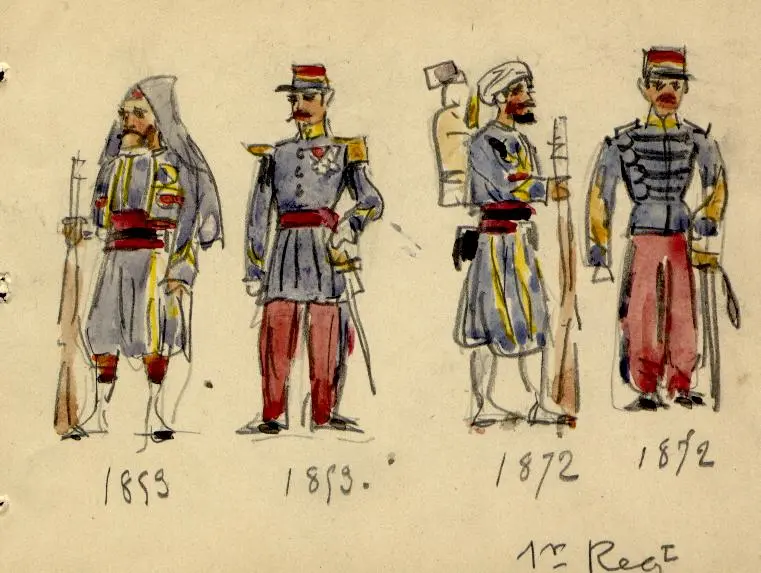 1853 1853. 1872 1872
1er Regt